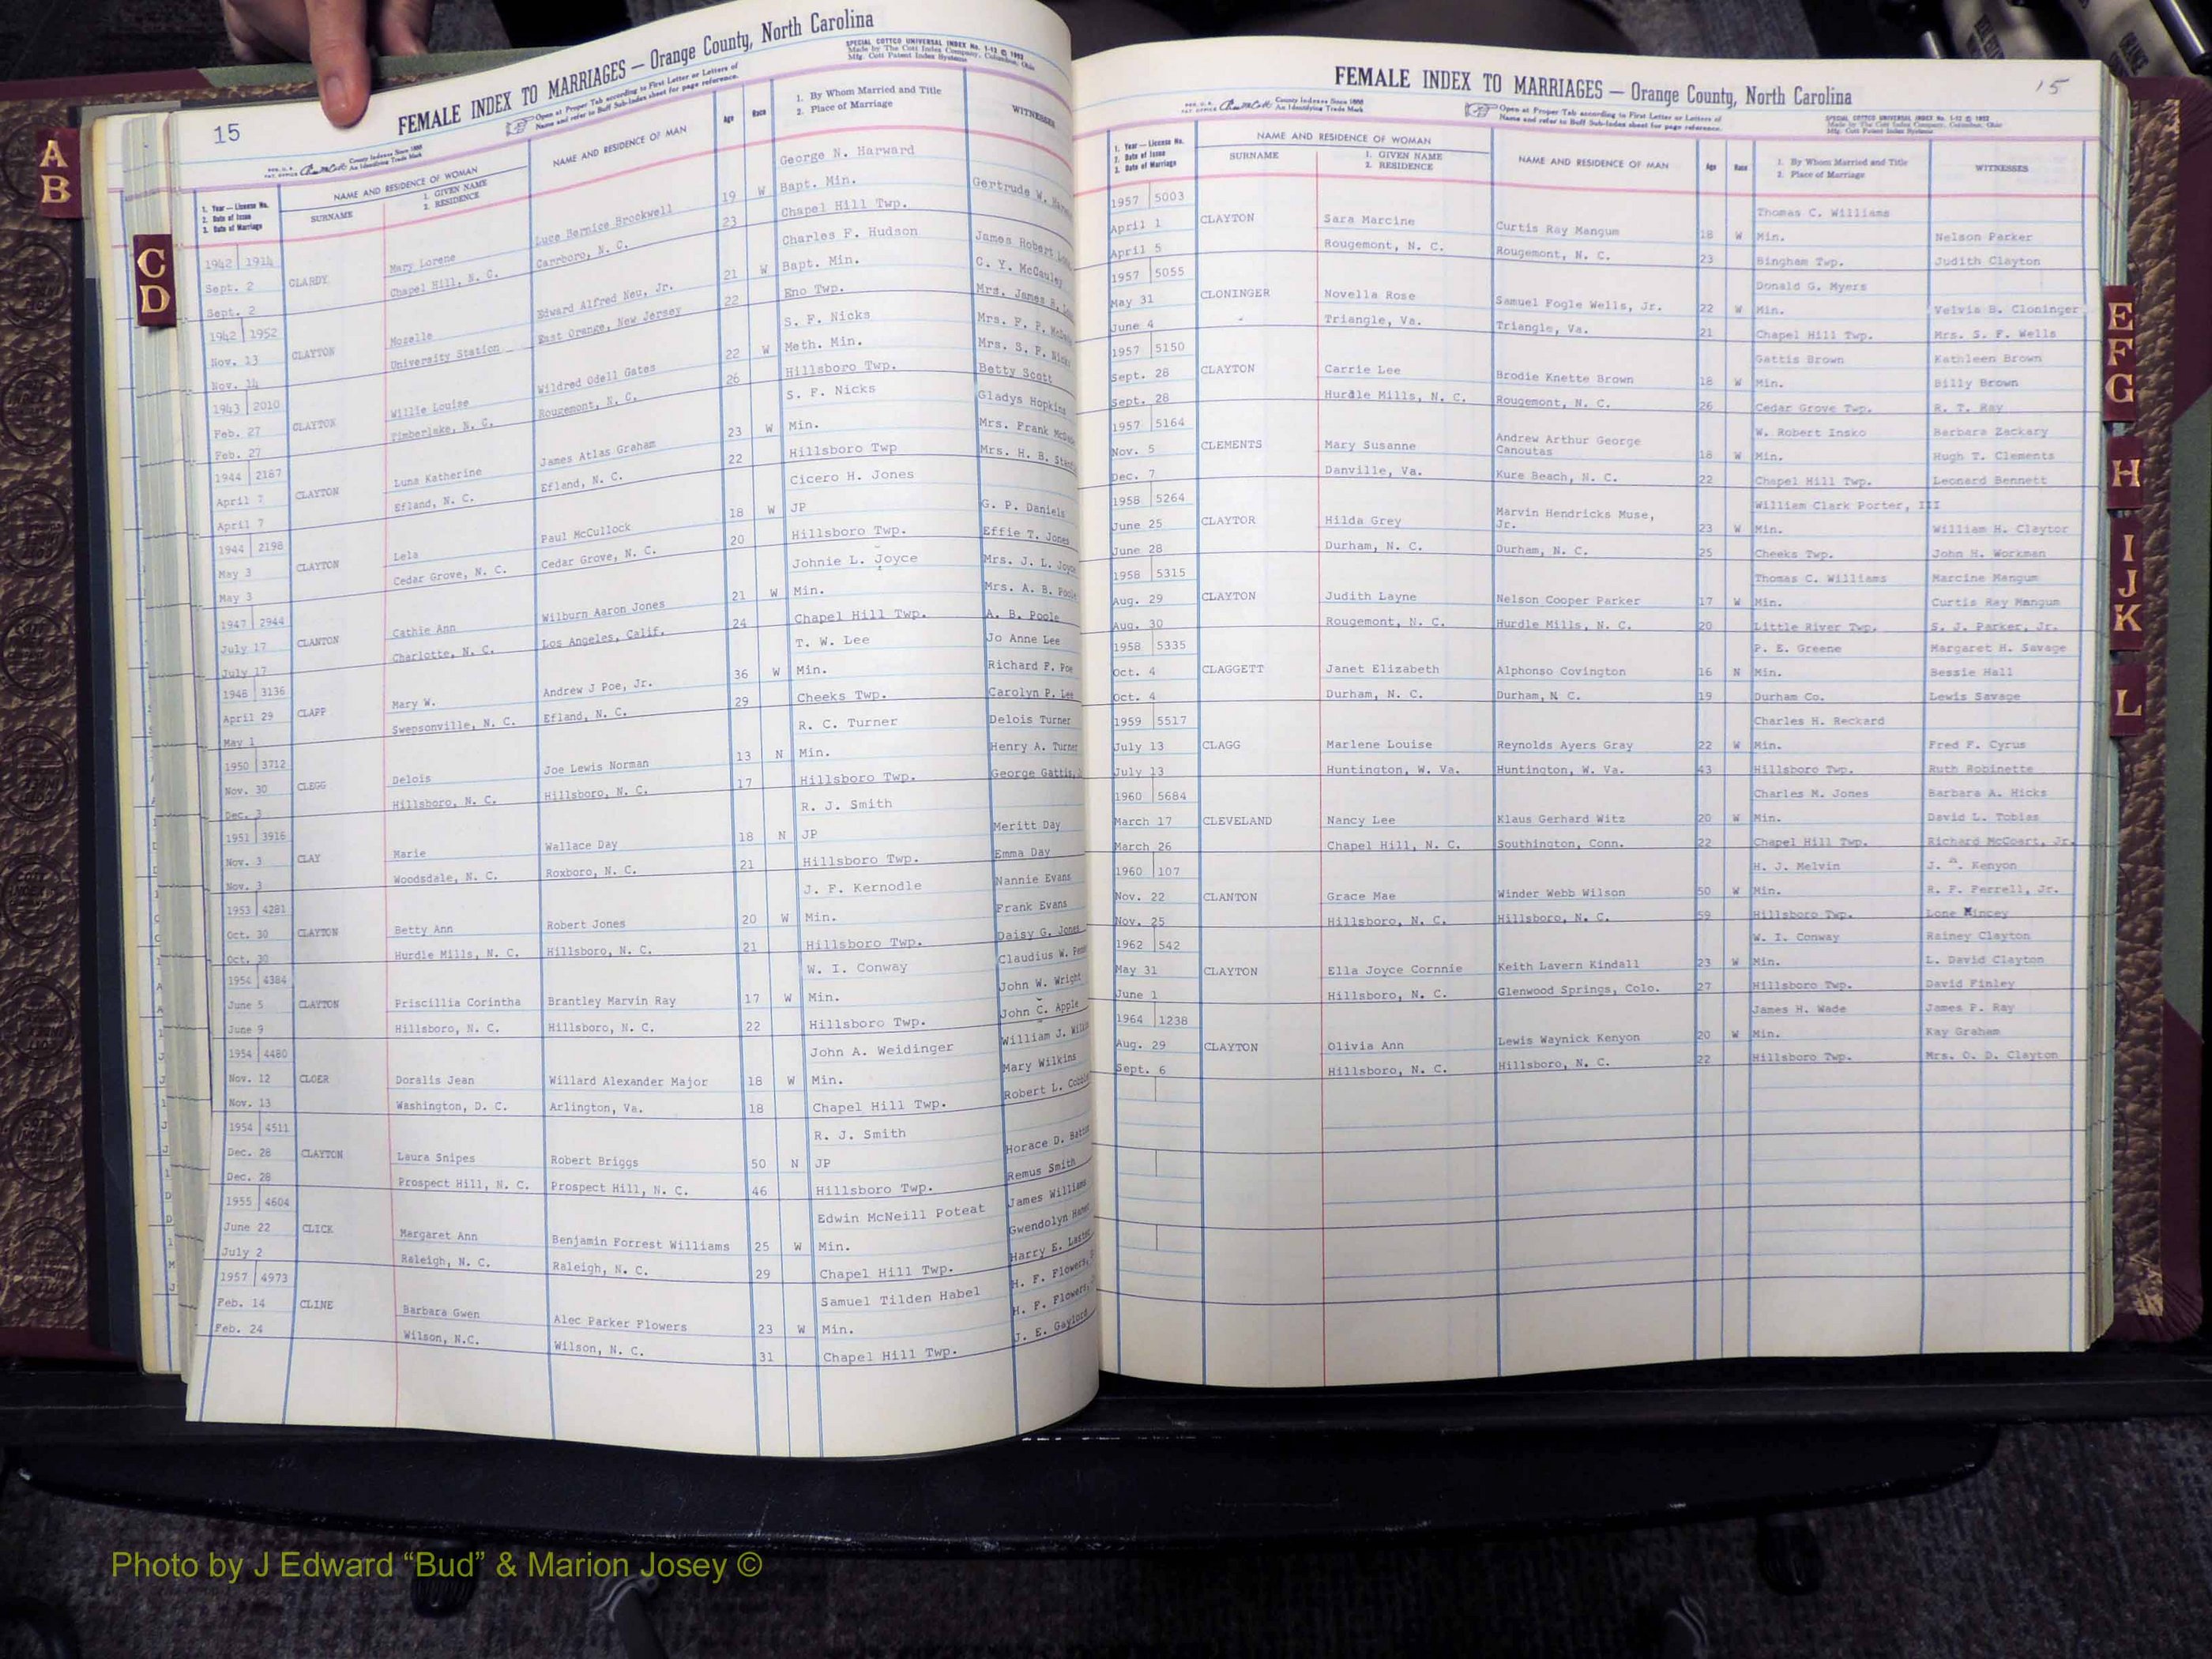 15
FEMALE INDEX TO MARRIAGES — Orange County, North Carolina
SPECIAL COTTCO UNIVERSAL INDEX No. 1-12 © 1952
Made by The Cott Index Company, Columbus, Ohio
Mfg. Cott Patent Index Systems
County Indexes Since 1888
An Identifying Trade Mark
Open at Proper Tab according to First Letter or Letters of
Name and refer to Buff Sub-Index sheet for page reference.
1. Year — License No.
2. Date of Issue
3. Date of Marriage
NAME AND RESIDENCE OF WOMAN
SURNAME
1. GIVEN NAME
2. RESIDENCE
NAME AND RESIDENCE OF MAN
Age
Race
1. By Whom Married and Title
2. Place of Marriage
WITNESSES
1942 1914 George N. Harward
Sept. 2 CLARDY Mary Lorene Luce Bernice Brockwell 19 W Bapt. Min. Gertrude W.
Sept. 2 Chapel Hill, N. C. Carrboro, N. C. 23 Chapel Hill Twp.
1942 1952 Charles F. Hudson James Robert
Nov. 13 CLAYTON Mozelle Edward Alfred Neu, Jr. 21 W Bapt. Min. C. Y. McCauley
Nov. 14 University Station East Orange, New Jersey 22 Eno Twp. Mrs. James R.
1943 2010 S. F. Nicks Mrs. F. P.
Feb. 27 CLAYTON Willie Louise Wildred Odell Gates 22 W Meth. Min. Mrs. S. F. Nicks
Feb. 27 Timberlake, N. C. Rougemont, N. C. 26 Hillsboro Twp. Betty Scott
1944 2187 S. F. Nicks Gladys Hopkins
April 7 CLAYTON Luna Katherine James Atlas Graham 23 W Min. Mrs. Frank
April 7 Efland, N. C. Efland, N. C. 22 Hillsboro Twp Mrs. H. B.
1944 2198 Cicero H. Jones
May 3 CLAYTON Lela Paul McCullock 18 W JP G. P. Daniels
May 3 Cedar Grove, N. C. Cedar Grove, N. C. 20 Hillsboro Twp. Effie T. Jones
1947 2944 Johnie L. Joyce Mrs. J. L. Joyce
July 17 CLANTON Cathie Ann Wilburn Aaron Jones 21 W Min. Mrs. A. B. Poole
July 17 Charlotte, N. C. Los Angeles, Calif. 24 Chapel Hill Twp. A. B. Poole
1948 3136 T. W. Lee Jo Anne Lee
April 29 CLAPP Mary W. Andrew J Poe, Jr. 36 W Min. Richard F. Poe
May 1 Swepsonville, N. C. Efland, N. C. 29 Cheeks Twp. Carolyn P. Lee
1950 3712 R. C. Turner Delois Turner
Nov. 30 CLEGG Delois Joe Lewis Norman 13 N Min. Henry A. Turner
Dec. 3 Hillsboro, N. C. Hillsboro, N. C. 17 Hillsboro Twp. George Gattis,
1951 3916 R. J. Smith
Nov. 3 CLAY Marie Wallace Day 18 N JP Meritt Day
Nov. 3 Woodsdale, N. C. Roxboro, N. C. 21 Hillsboro Twp. Emma Day
1953 4281 J. F. Kernodle Nannie Evans
Oct. 30 CLAYTON Betty Ann Robert Jones 20 W Min. Frank Evans
Oct. 30 Hurdle Mills, N. C. Hillsboro, N. C. 21 Hillsboro Twp. Daisy G. Jones
1954 4384 W. I. Conway Claudius W.
June 5 CLAYTON Priscillia Corintha Brantley Marvin Ray 17 W Min. John W. Wright
June 9 Hillsboro, N. C. Hillsboro, N. C. 22 Hillsboro Twp. John C. Apple
1954 4480 John A. Weidinger William J.
Nov. 12 CLOER Doralis Jean Willard Alexander Major 18 W Min. Mary Wilkins
Nov. 13 Washington, D. C. Arlington, Va. 18 Chapel Hill Twp. Robert L.
1954 4511 R. J. Smith
Dec. 28 CLAYTON Laura Snipes Robert Briggs 50 N JP Horace D.
Dec. 28 Prospect Hill, N. C. Prospect Hill, N. C. 46 Hillsboro Twp. Remus Smith
1955 4604 Edwin McNeill Poteat James Williams
June 22 CLICK Margaret Ann Benjamin Forrest Williams 25 W Min. Gwendolyn
July 2 Raleigh, N. C. Raleigh, N. C. 29 Chapel Hill Twp. Harry E.
1957 4973 Samuel Tilden Habel H. F. Flowers,
Feb. 14 CLINE Barbara Gwen Alec Parker Flowers 23 W Min. H. F. Flowers,
Feb. 24 Wilson, N.C. Wilson, N. C. 31 Chapel Hill Twp. J. E. Gaylord
15
FEMALE INDEX TO MARRIAGES — Orange County, North Carolina
County Indexes Since 1888
An Identifying Trade Mark
Open at Proper Tab according to First Letter or Letters of
Name and refer to Buff Sub-Index sheet for page reference.
SPECIAL COTTCO UNIVERSAL INDEX No. 1-12 © 1952
Made by The Cott Index Company, Columbus, Ohio
Mfg. Cott Patent Index Systems
1. Year — License No.
2. Date of Issue
3. Date of Marriage
NAME AND RESIDENCE OF WOMAN
SURNAME
1. GIVEN NAME
2. RESIDENCE
NAME AND RESIDENCE OF MAN
Age
Race
1. By Whom Married and Title
2. Place of Marriage
WITNESSES
1957 5003 Thomas C. Williams
April 1 CLAYTON Sara Marcine Curtis Ray Mangum 18 W Min. Nelson Parker
April 5 Rougemont, N. C. Rougemont, N. C. 23 Bingham Twp. Judith Clayton
1957 5055 Donald G. Myers
May 31 CLONINGER Novella Rose Samuel Fogle Wells, Jr. 22 W Min. Velvia B. Cloninger
June 4 Triangle, Va. Triangle, Va. 21 Chapel Hill Twp. Mrs. S. F. Wells
1957 5150 Gattis Brown Kathleen Brown
Sept. 28 CLAYTON Carrie Lee Brodie Knette Brown 18 W Min. Billy Brown
Sept. 28 Hurdle Mills, N. C. Rougemont, N. C. 26 Cedar Grove Twp. R. T. Ray
1957 5164 W. Robert Insko Barbara Zackary
Nov. 5 CLEMENTS Mary Susanne Andrew Arthur George Canoutas 18 W Min. Hugh T. Clements
Dec. 7 Danville, Va. Kure Beach, N. C. 22 Chapel Hill Twp. Leonard Bennett
1958 5264 William Clark Porter, III
June 25 CLAYTOR Hilda Grey Marvin Hendricks Muse, Jr. 23 W Min. William H. Claytor
June 28 Durham, N. C. Durham, N. C. 25 Cheeks Twp. John H. Workman
1958 5315 Thomas C. Williams Marcine Mangum
Aug. 29 CLAYTON Judith Layne Nelson Cooper Parker 17 W Min. Curtis Ray Mangum
Aug. 30 Rougemont, N. C. Hurdle Mills, N. C. 20 Little River Twp. S. J. Parker, Jr.
1958 5335 P. E. Greene Margaret H. Savage
Oct. 4 CLAGGETT Janet Elizabeth Alphonso Covington 16 N Min. Bessie Hall
Oct. 4 Durham, N. C. Durham, N C. 19 Durham Co. Lewis Savage
1959 5517 Charles H. Reckard
July 13 CLAGG Marlene Louise Reynolds Ayers Gray 22 W Min. Fred F. Cyrus
July 13 Huntington, W. Va. Huntington, W. Va. 43 Hillsboro Twp. Ruth Robinette
1960 5684 Charles M. Jones Barbara A. Hicks
March 17 CLEVELAND Nancy Lee Klaus Gerhard Witz 20 W Min. David L. Tobias
March 26 Chapel Hill, N. C. Southington, Conn. 22 Chapel Hill Twp. Richard McCoart, Jr.
1960 107 H. J. Melvin J. Kenyon
Nov. 22 CLANTON Grace Mae Winder Webb Wilson 50 W Min. R. F. Ferrell, Jr.
Nov. 25 Hillsboro, N. C. Hillsboro, N. C. 59 Hillsboro Twp. Lone Mincey
1962 542 W. I. Conway Rainey Clayton
May 31 CLAYTON Ella Joyce Cornnie Keith Lavern Kindall 23 W Min. L. David Clayton
June 1 Hillsboro, N. C. Glenwood Springs, Colo. 27 Hillsboro Twp. David Finley
1964 1238 James H. Wade James P. Ray
Aug. 29 CLAYTON Olivia Ann Lewis Waynick Kenyon 20 W Min. Kay Graham
Sept. 6 Hillsboro, N. C. Hillsboro, N. C. 22 Hillsboro Twp. Mrs. O. D. Clayton
A
B
C
D
E
F
G
H
I
J
K
L
Photo by J Edward “Bud” & Marion Josey ©